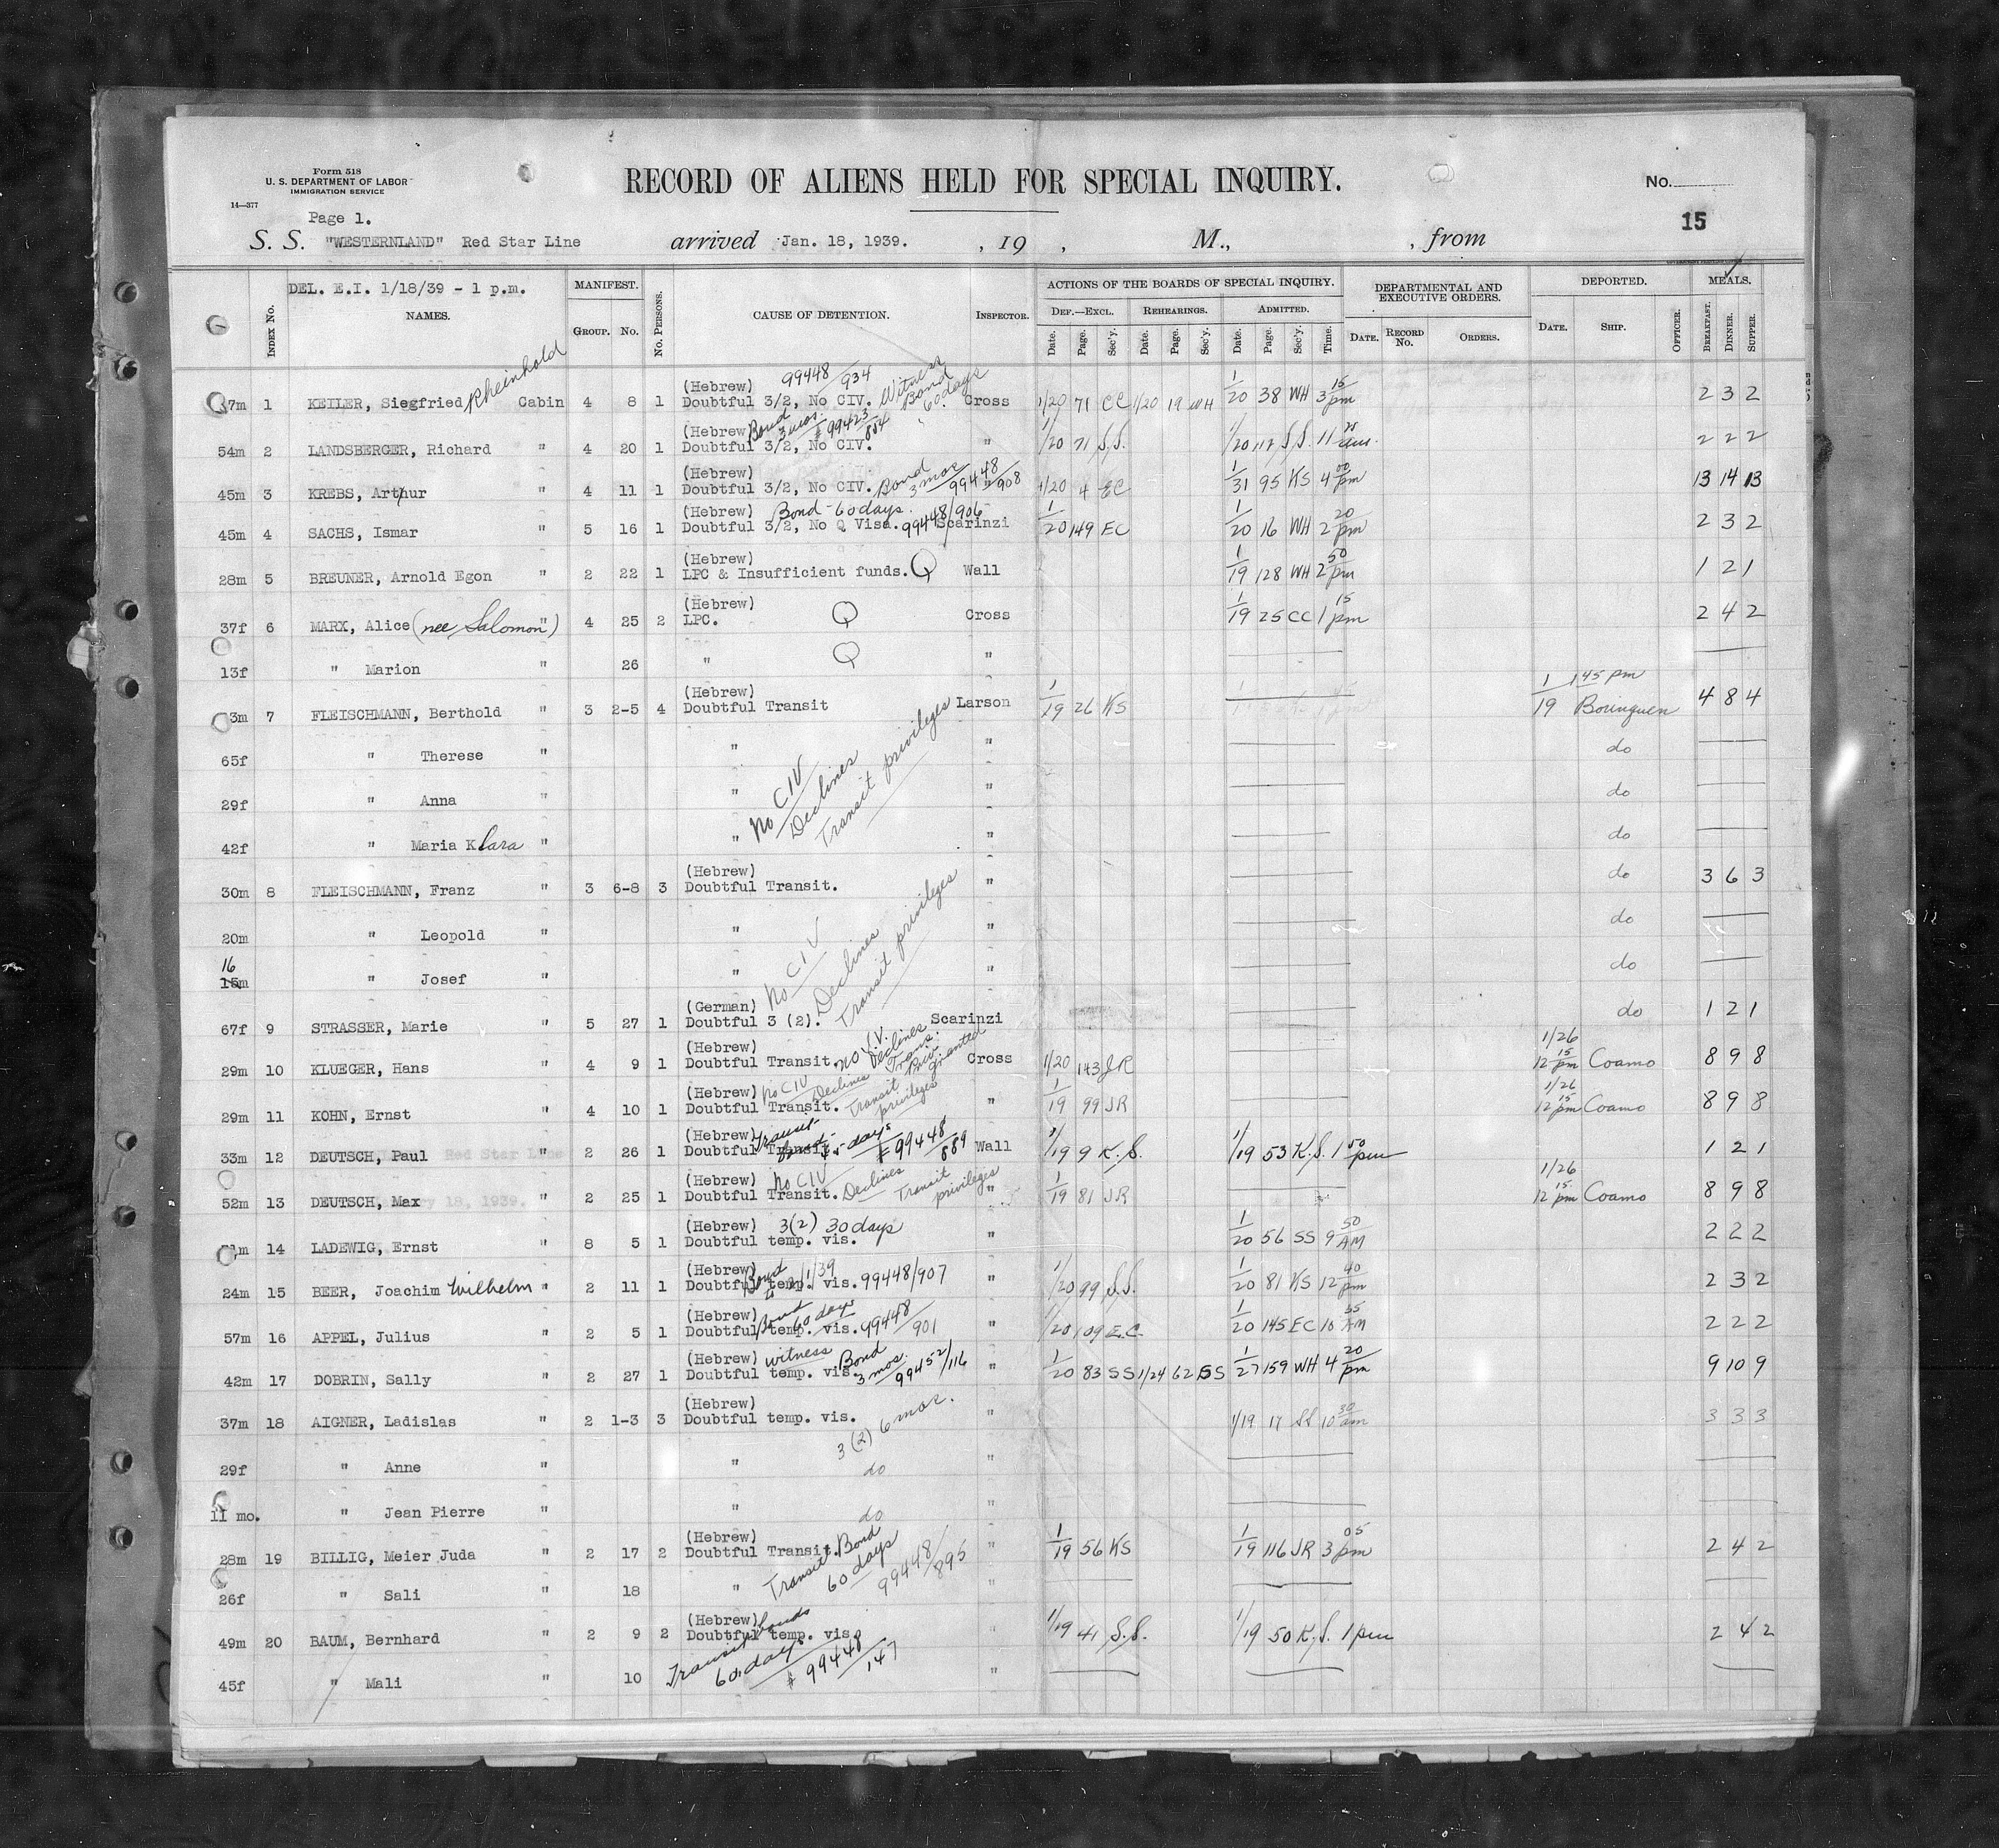 Form 518
U. S. DEPARTMENT OF LABOR
IMMIGRATION SERVICE
14—377
RECORD OF ALIENS HELD FOR SPECIAL INQUIRY.
No.
15
Page 1.
S. S. "WESTERNLAND" Red Star Line arrived Jan. 18, 1939. , 19 , M., , from
DEL. E.I. 1/18/39 - 1 p.m.
INDEX No. NAMES. MANIFEST. GROUP. No. No. PERSONS. CAUSE OF DETENTION. INSPECTOR. ACTIONS OF THE BOARDS OF SPECIAL INQUIRY. DEPARTMENTAL AND EXECUTIVE ORDERS. DEPORTED. MEALS.
DEF.—EXCL. REHEARINGS. ADMITTED.
Date. Page. Sec'y. Date. Page. Sec'y. Date. Page. Sec'y. Time. DATE. RECORD No. ORDERS. DATE. SHIP. OFFICER. BREAKFAST. DINNER. SUPPER.
(Hebrew) 99448/934 Witness Bond 60 days
7m 1 KEILER, Siegfried Rheinhold Cabin 4 8 1 Doubtful 3/2, No CIV. Cross 1/20 71 CC 1/20 19 WH 1/20 38 WH 3 15 pm 2 3 2
(Hebrew) Bond 3 mos. # 99423/884
54m 2 LANDSBERGER, Richard " 4 20 1 Doubtful 3/2, No CIV. " 1/20 71 S.S. 1/20 117 S.S. 11 25 am. 2 2 2
(Hebrew) Bond 3 mos 99448/908
45m 3 KREBS, Arthur " 4 11 1 Doubtful 3/2, No CIV. 1/20 4 EC 1/31 95 KS 4 00 pm 13 14 13
(Hebrew) Bond - 60 days. 99448/906
45m 4 SACHS, Ismar " 5 16 1 Doubtful 3/2, No Q Visa. Scarinzi 1/20 149 EC 1/20 16 WH 2 20 pm 2 3 2
(Hebrew)
28m 5 BREUNER, Arnold Egon " 2 22 1 LPC & Insufficient funds. Q Wall 1/19 128 WH 2 50 pm 1 2 1
(Hebrew)
37f 6 MARX, Alice (nee Salomon) " 4 25 2 LPC. Q Cross 1/19 25 CC 1 15 pm 2 4 2
13f " Marion " 26 " Q "
(Hebrew)
3m 7 FLEISCHMANN, Berthold " 3 2-5 4 Doubtful Transit Larson 1/19 26 KS 1/19 1 45 pm Borinquen 4 8 4
65f " Therese " " " do
29f " Anna " " " do
42f " Maria Klara " " " do
No CIV Declines Transit privileges
(Hebrew)
30m 8 FLEISCHMANN, Franz " 3 6-8 3 Doubtful Transit. " do 3 6 3
20m " Leopold " " " do
16
15m " Josef " " " do
No CIV Declines Transit privileges
(German)
67f 9 STRASSER, Marie " 5 27 1 Doubtful 3 (2). Scarinzi do 1 2 1
(Hebrew) no C.I.V. Declines Trans. Priv. granted
29m 10 KLUEGER, Hans " 4 9 1 Doubtful Transit. Cross 1/20 143 JR 1/26 12 15 pm Coamo 8 9 8
(Hebrew) No CIV Declines Transit privileges
29m 11 KOHN, Ernst " 4 10 1 Doubtful Transit. " 1/19 99 JR 1/26 12 15 pm Coamo 8 9 8
(Hebrew) Transit days # 99448/889
33m 12 DEUTSCH, Paul " 2 26 1 Doubtful Transit Wall 1/19 9 K.S. 1/19 53 K.S. 1 50 pm 1 2 1
(Hebrew) No CIV Declines Transit privileges
52m 13 DEUTSCH, Max " 2 25 1 Doubtful Transit. " 1/19 81 JR 1/26 12 15 pm Coamo 8 9 8
(Hebrew) 3(2) 30 days
1m 14 LADEWIG, Ernst " 8 5 1 Doubtful temp. vis. " 1/20 56 SS 9 50 AM 2 2 2
(Hebrew) Bond 99448/907
24m 15 BEER, Joachim Wilhelm " 2 11 1 Doubtful temp. vis. " 1/20 99 S.S. 1/20 81 KS 12 40 pm 2 3 2
(Hebrew) Bond 60 days 99448/901
57m 16 APPEL, Julius " 2 5 1 Doubtful temp. vis. " 1/20 109 E.C. 1/20 145 EC 10 35 AM 2 2 2
(Hebrew) witness Bond 3 mos. 99452/116
42m 17 DOBRIN, Sally " 2 27 1 Doubtful temp. vis. " 1/20 83 SS 1/24 62 SS 1/27 159 WH 4 20 pm 9 10 9
(Hebrew)
37m 18 AIGNER, Ladislas " 2 1-3 3 Doubtful temp. vis. 3(2) 6 mos. " 1/19 17 SS 10 30 am 3 3 3
29f " Anne " " do "
11 mo. " Jean Pierre " " do "
(Hebrew)
28m 19 BILLIG, Meier Juda " 2 17 2 Doubtful Transit. " 1/19 56 KS 1/19 116 JR 3 05 pm 2 4 2
26f " Sali " 18 " Transit Bond 60 days 99448/895 "
(Hebrew)
49m 20 BAUM, Bernhard " 2 9 2 Doubtful temp. vis. " 1/19 41 S.S. 1/19 50 K.S. 1 pm 2 4 2
45f " Mali " 10 Transit bonds 60 days # 99448/147 "